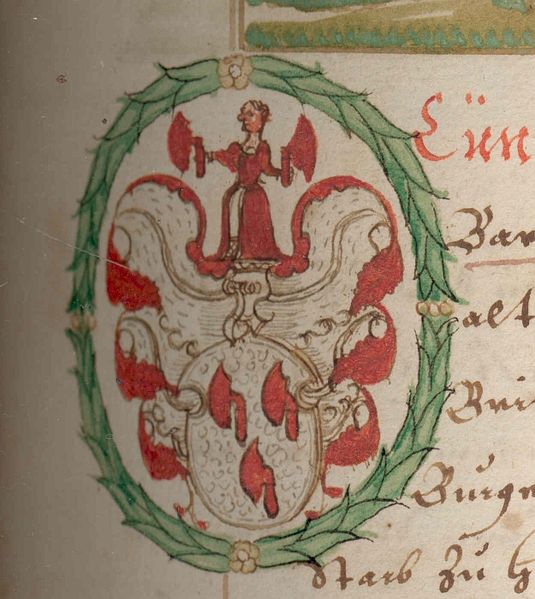 Cün
Bar
alt
Bri
Burge
starb zu h